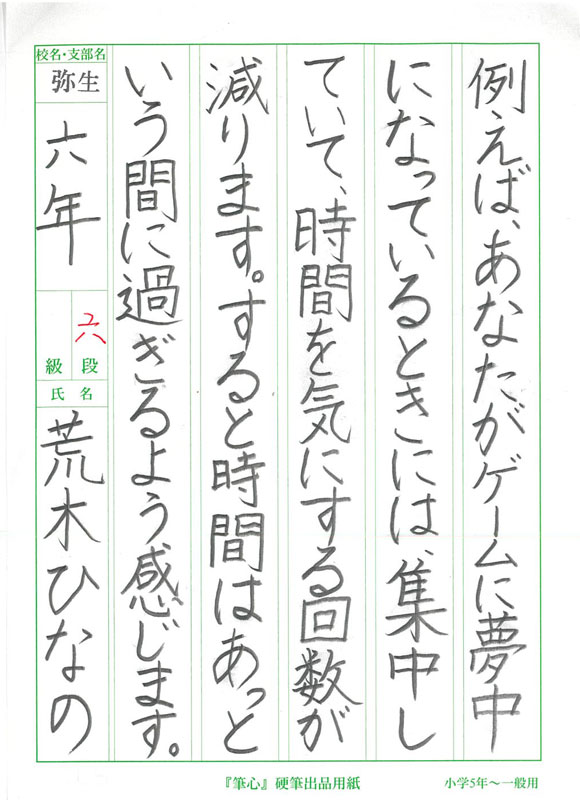 例えば、あなたがゲームに夢中
になっているときには、集中し
ていて、時間を気にする回数が
減ります。すると時間はあっと
いう間に過ぎるよう感じます。
校名・支部名
弥生
六年
六
級 段
氏名
荒木ひなの
『筆心』硬筆出品用紙
小学5年〜一般用